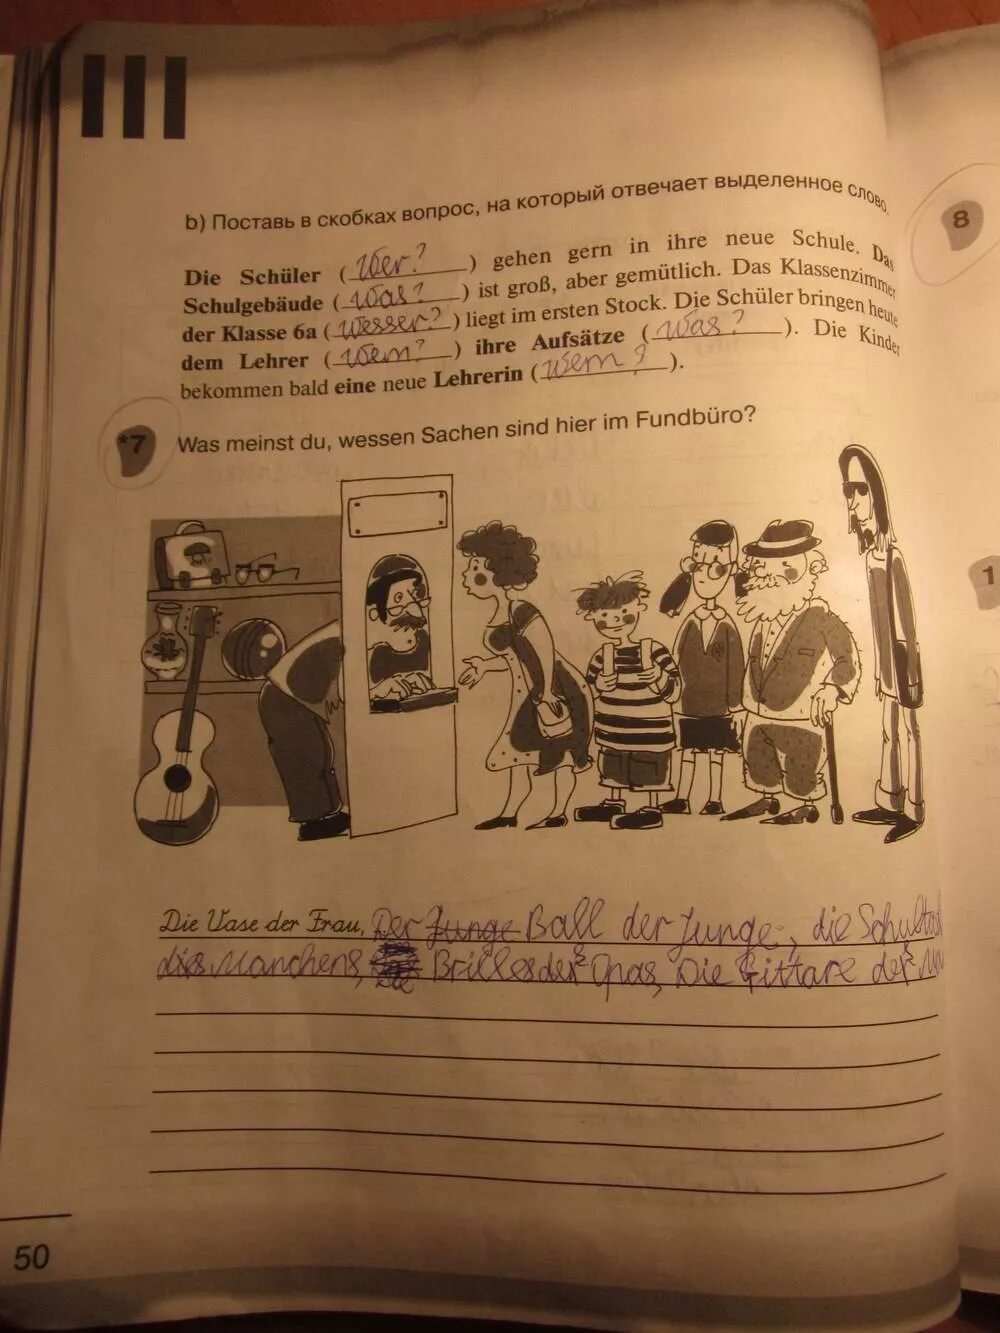 III
b) Поставь в скобках вопрос, на который отвечает выделенное слово.
Die Schüler (Wer?) gehen gern in ihre neue Schule. Das
Schulgebäude (Was?) ist groß, aber gemütlich. Das Klassenzimmer
der Klasse 6a (Wesser?) liegt im ersten Stock. Die Schüler bringen heute
dem Lehrer (Wem?) ihre Aufsätze (Was?). Die Kinder
bekommen bald eine neue Lehrerin (Wem?).
*7 Was meinst du, wessen Sachen sind hier im Fundbüro?
8
1
Die Vase der Frau, Der Junge Ball der Junge, die
Manchens, Brilles der Opas, Die Gittare der
50